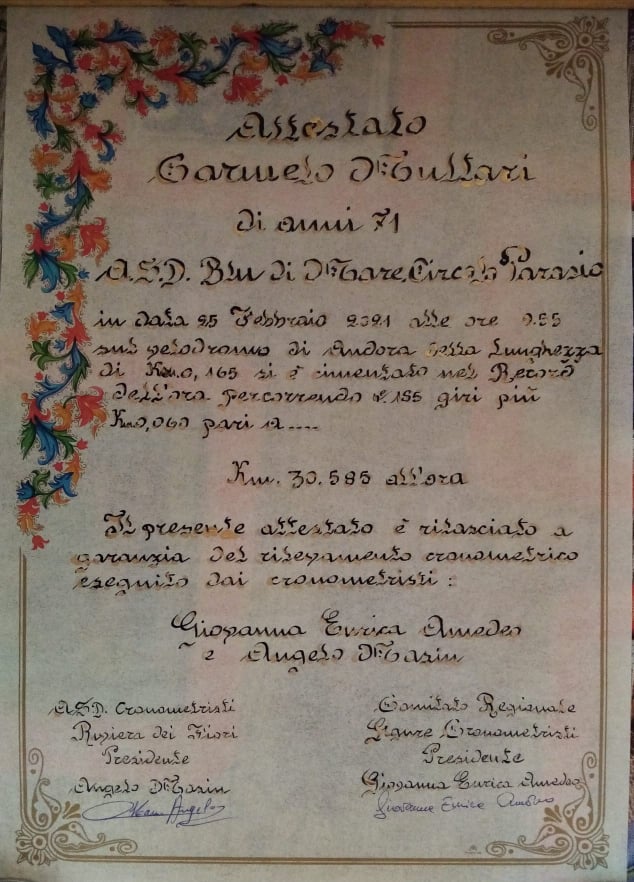 Attestato
Carmelo Multari
di anni 71
A.S.D. Blu di Mare, Circolo Parasio
in data 25 Febbraio 2021 alle ore 9.55
sul velodromo di Andora della lunghezza
di Km.0,165 si è cimentato nel Record
dell'ora percorrendo n.185 giri più
Km.0,060 pari a....
Km. 30.585 all'ora
Il presente attestato è rilasciato a
garanzia del rilevamento cronometrico
eseguito dai cronometristi :
Giovanna Enrica Amedeo
e Angelo Masin
A.S.D. Cronometristi
Riviera dei Fiori
Presidente
Angelo Masin
Masin Angelo
Comitato Regionale
Ligure Cronometristi
Presidente
Giovanna Enrica Amedeo
Giovanna Enrica Amedeo